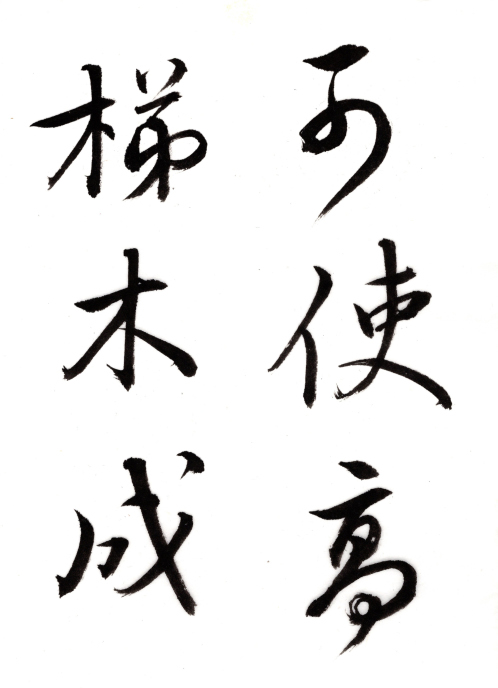 可使高
梯木成